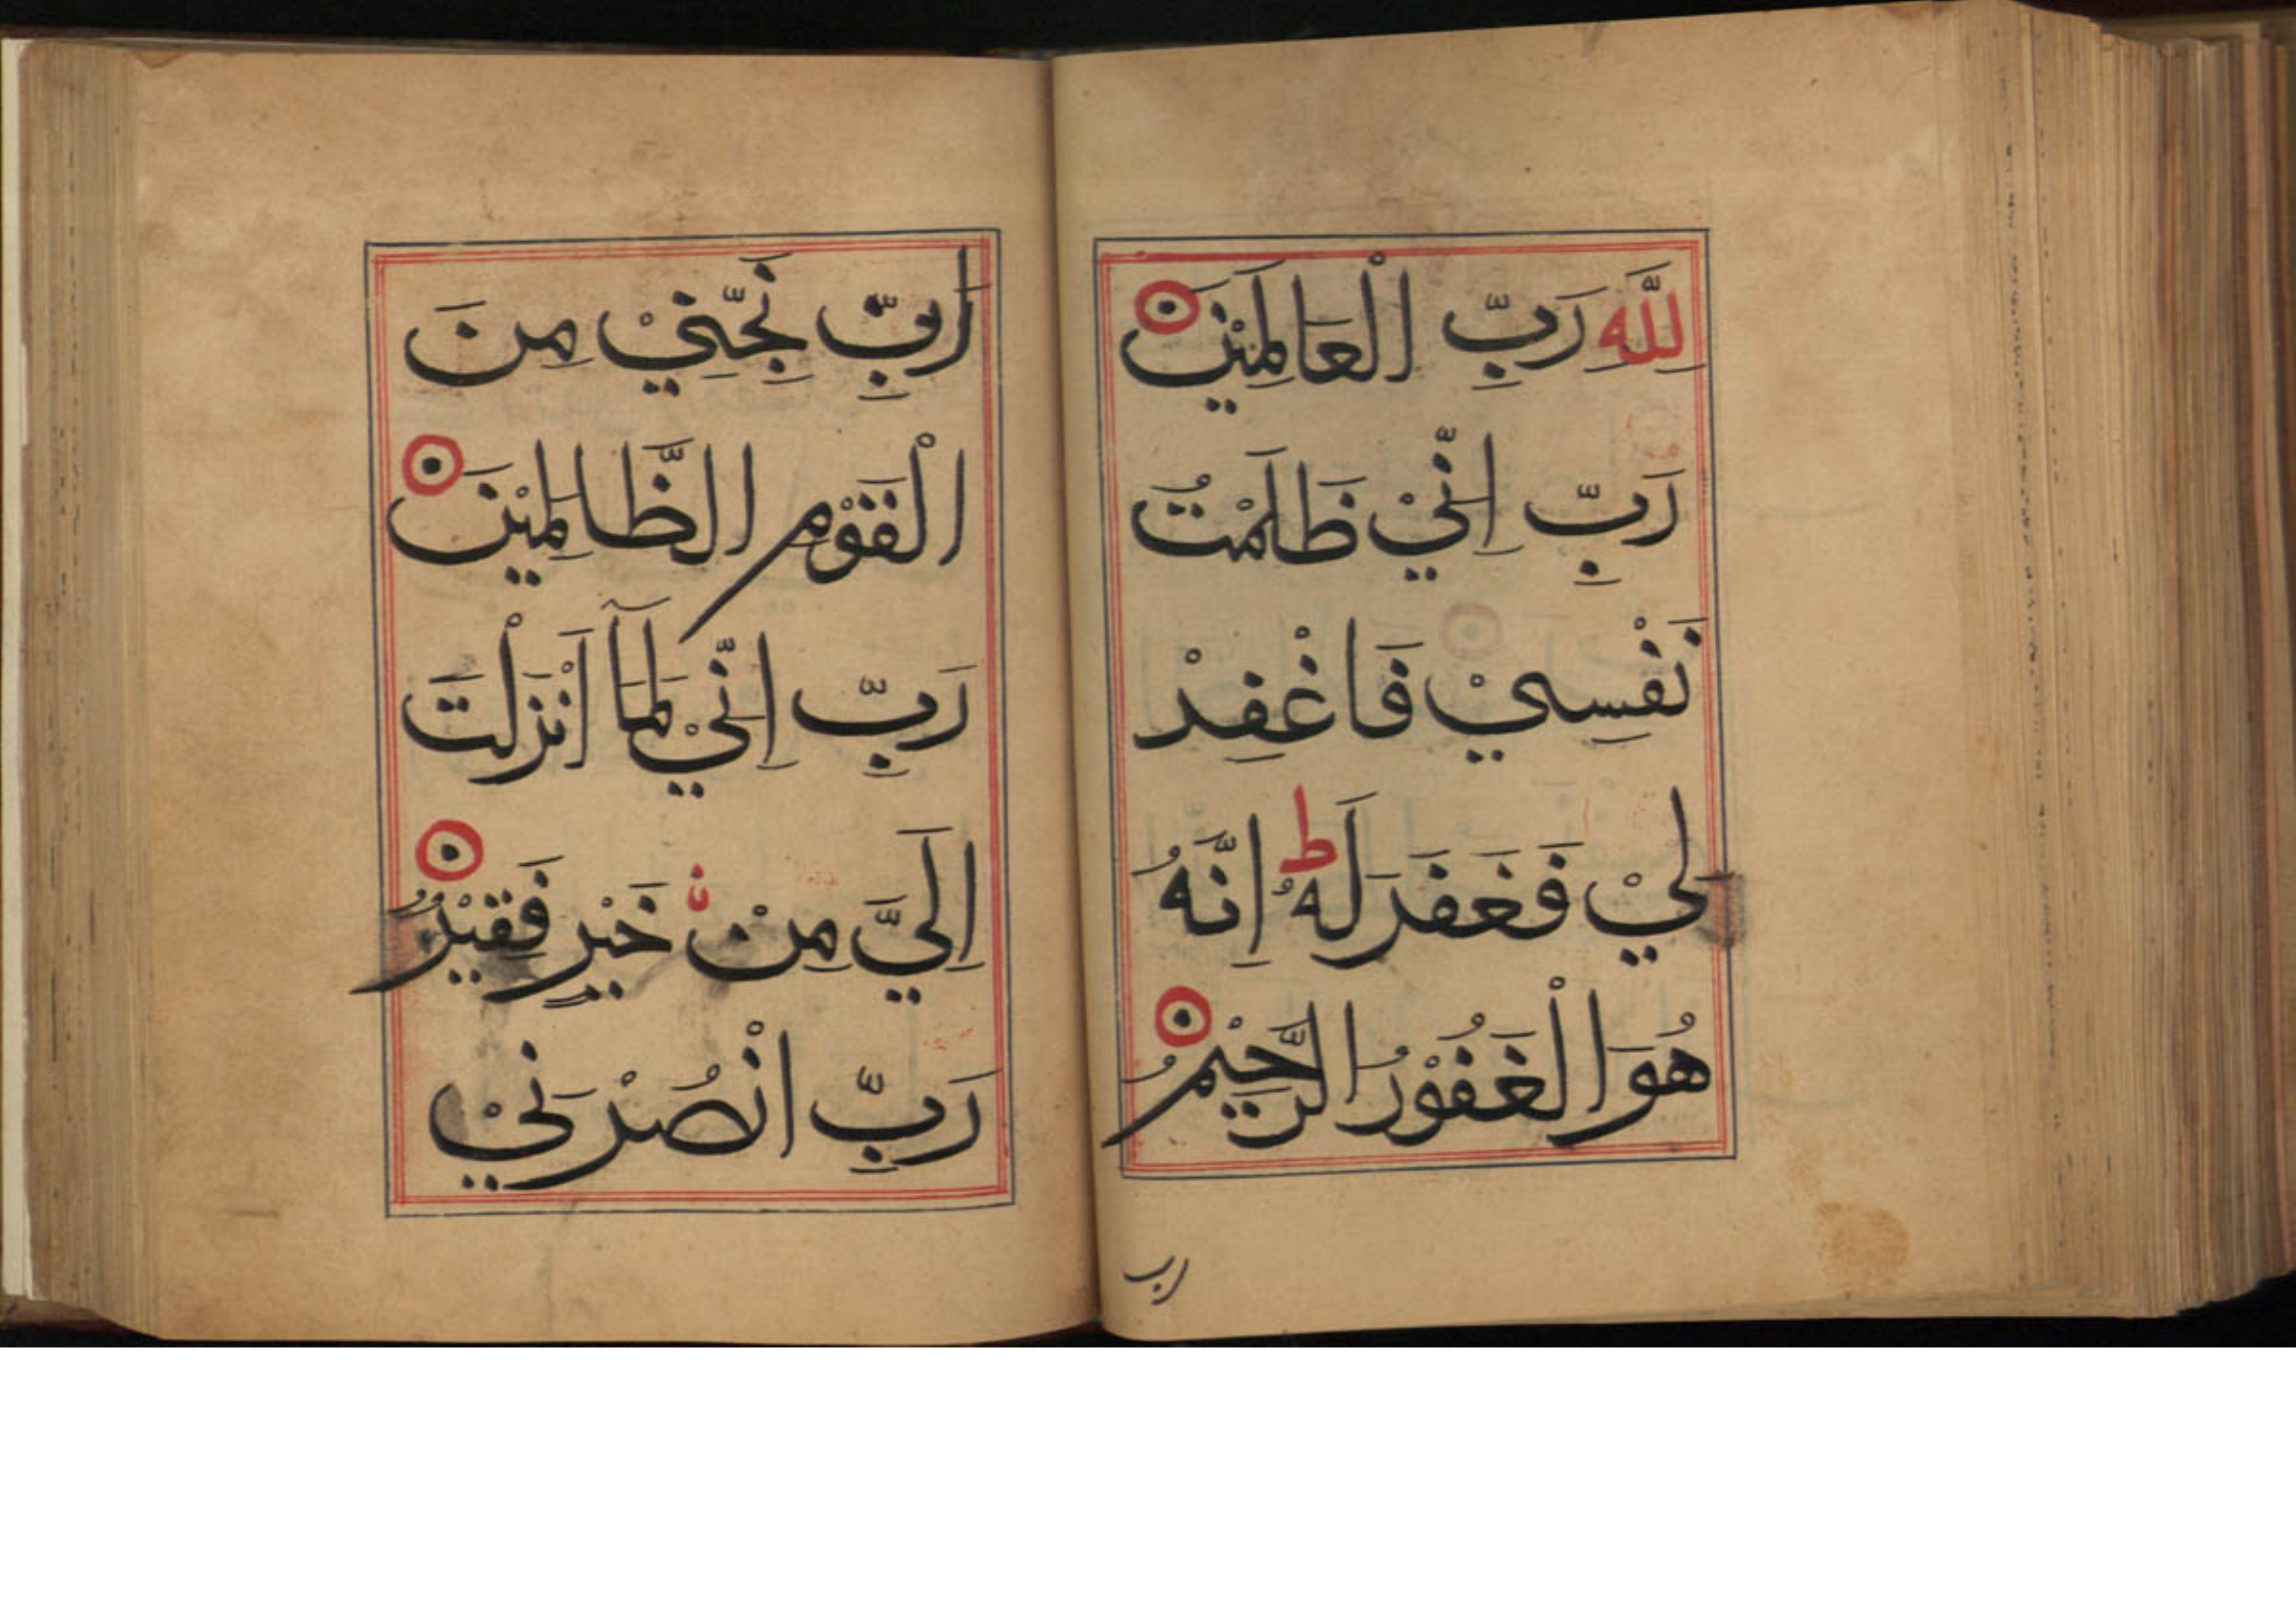 لِلّٰهِ رَبِّ الْعَالَمِيْنَ
رَبِّ اِنِّيْ ظَلَمْتُ
نَفْسِيْ فَاغْفِرْ
لِيْ فَغَفَرَ لَهُ ط اِنَّهُ
هُوَ الْغَفُوْرُ الرَّحِيْمُ
رب
رَبِّ نَجِّنِيْ مِنَ
الْقَوْمِ الظَّالِمِيْنَ
رَبِّ اِنِّيْ لِمَآ اَنْزَلْتَ
اِلَيَّ مِنْ خَيْرٍ فَقِيْرٌ
رَبِّ انْصُرْنِيْ